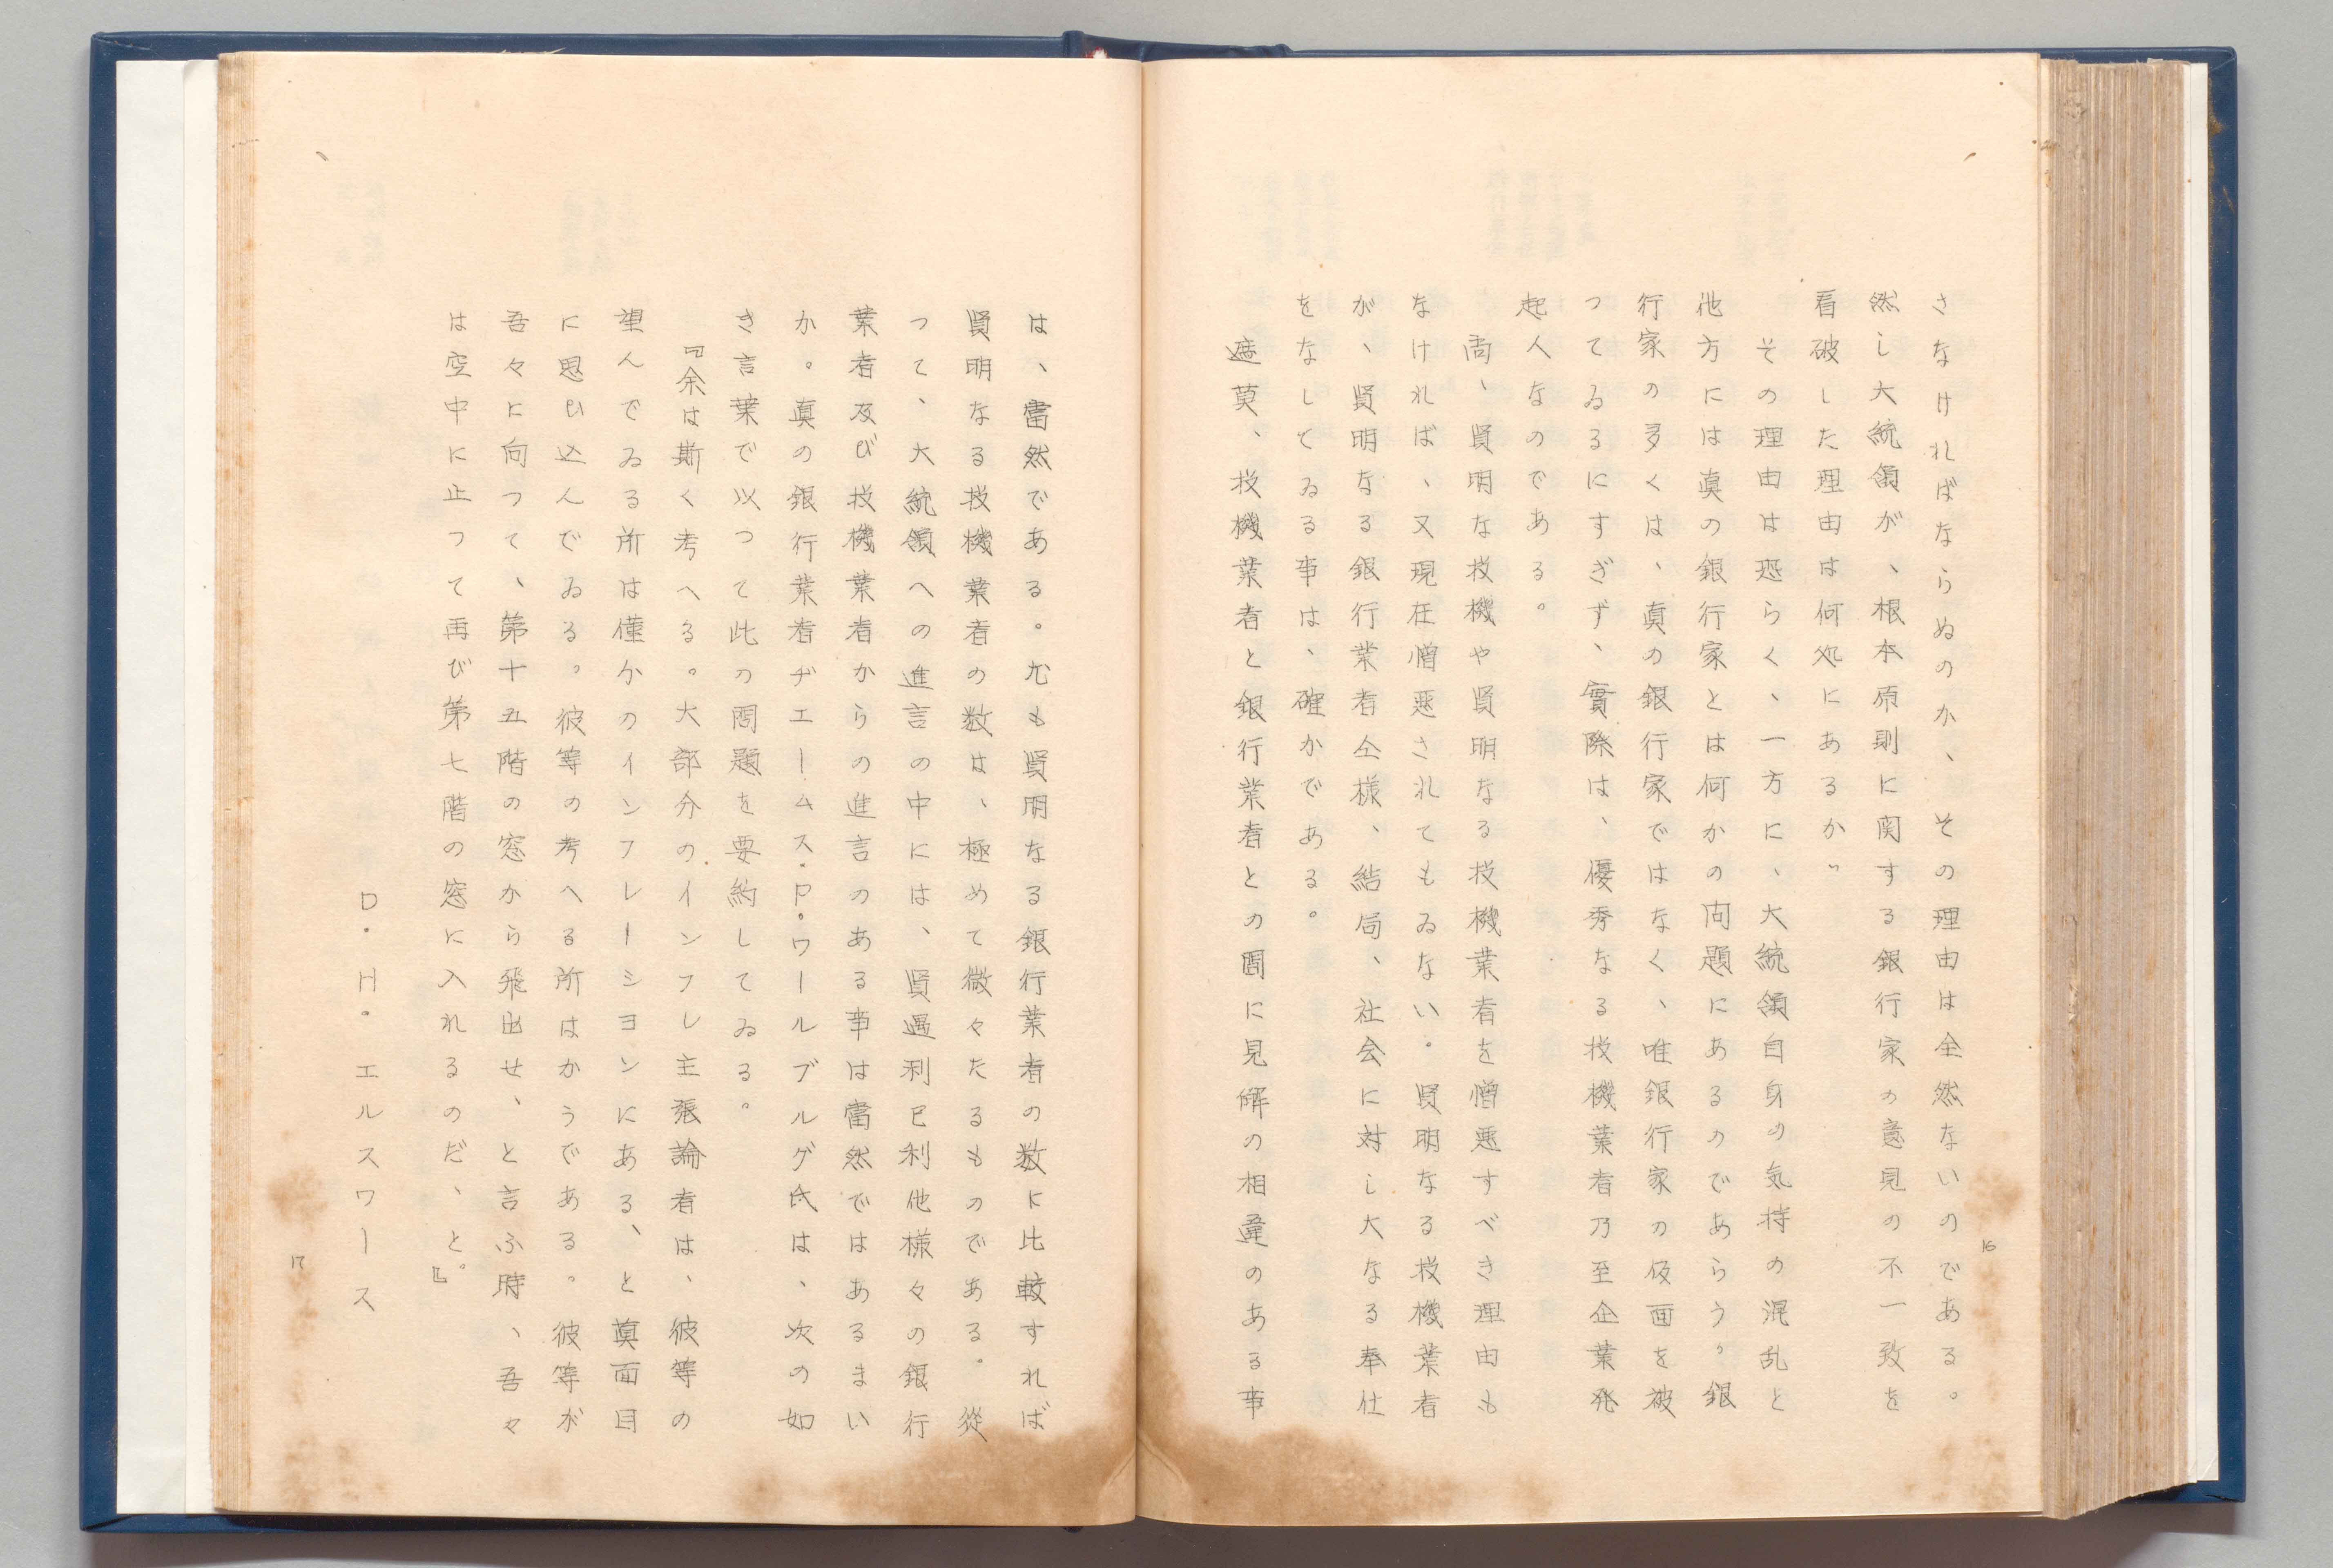 さなければならぬのか、その理由は全然ないのである。
然し大統領が、根本原則に関する銀行家の意見の不一致を
看破した理由は何処にあるか。
その理由は恐らく、一方に、大統領自身の気持の混乱と
他方には真の銀行家とは何かの問題にあるのであらう。銀
行家の多くは、真の銀行家ではなく、唯銀行家の仮面を被
つてゐるにすぎず、實際は、優秀なる投機業者乃至企業発
起人なのである。
尚、賢明な投機や賢明なる投機業者を憎悪すべき理由も
なければ、又現在憎悪されてもゐない。賢明なる投機業者
が、賢明なる銀行業者仝様、結局、社会に対し大なる奉仕
をなしてゐる事は、確かである。
遮莫、投機業者と銀行業者との間に見解の相違のある事
16
は、當然である。尤も賢明なる銀行業者の数に比較すれば
賢明なる投機業者の数は、極めて微々たるものである。從
つて、大統領への進言の中には、賢愚利己利他様々の銀行
業者及び投機業者からの進言のある事は當然ではあるまい
か。真の銀行業者ヂエームス・P・ワールブルグ氏は、次の如
き言葉で以つて此の問題を要約してゐる。
『余は斯く考へる。大部分のインフレ主張論者は、彼等の
望んでゐる所は僅かのインフレーシヨンにある、と真面目
に思ひ込んでゐる。彼等の考へる所はかうである。彼等が
吾々に向つて、第十五階の窓から飛出せ、と言ふ時、吾々
は空中に止つて再び第七階の窓に入れるのだ、と。』
D・H・エルスワース
17